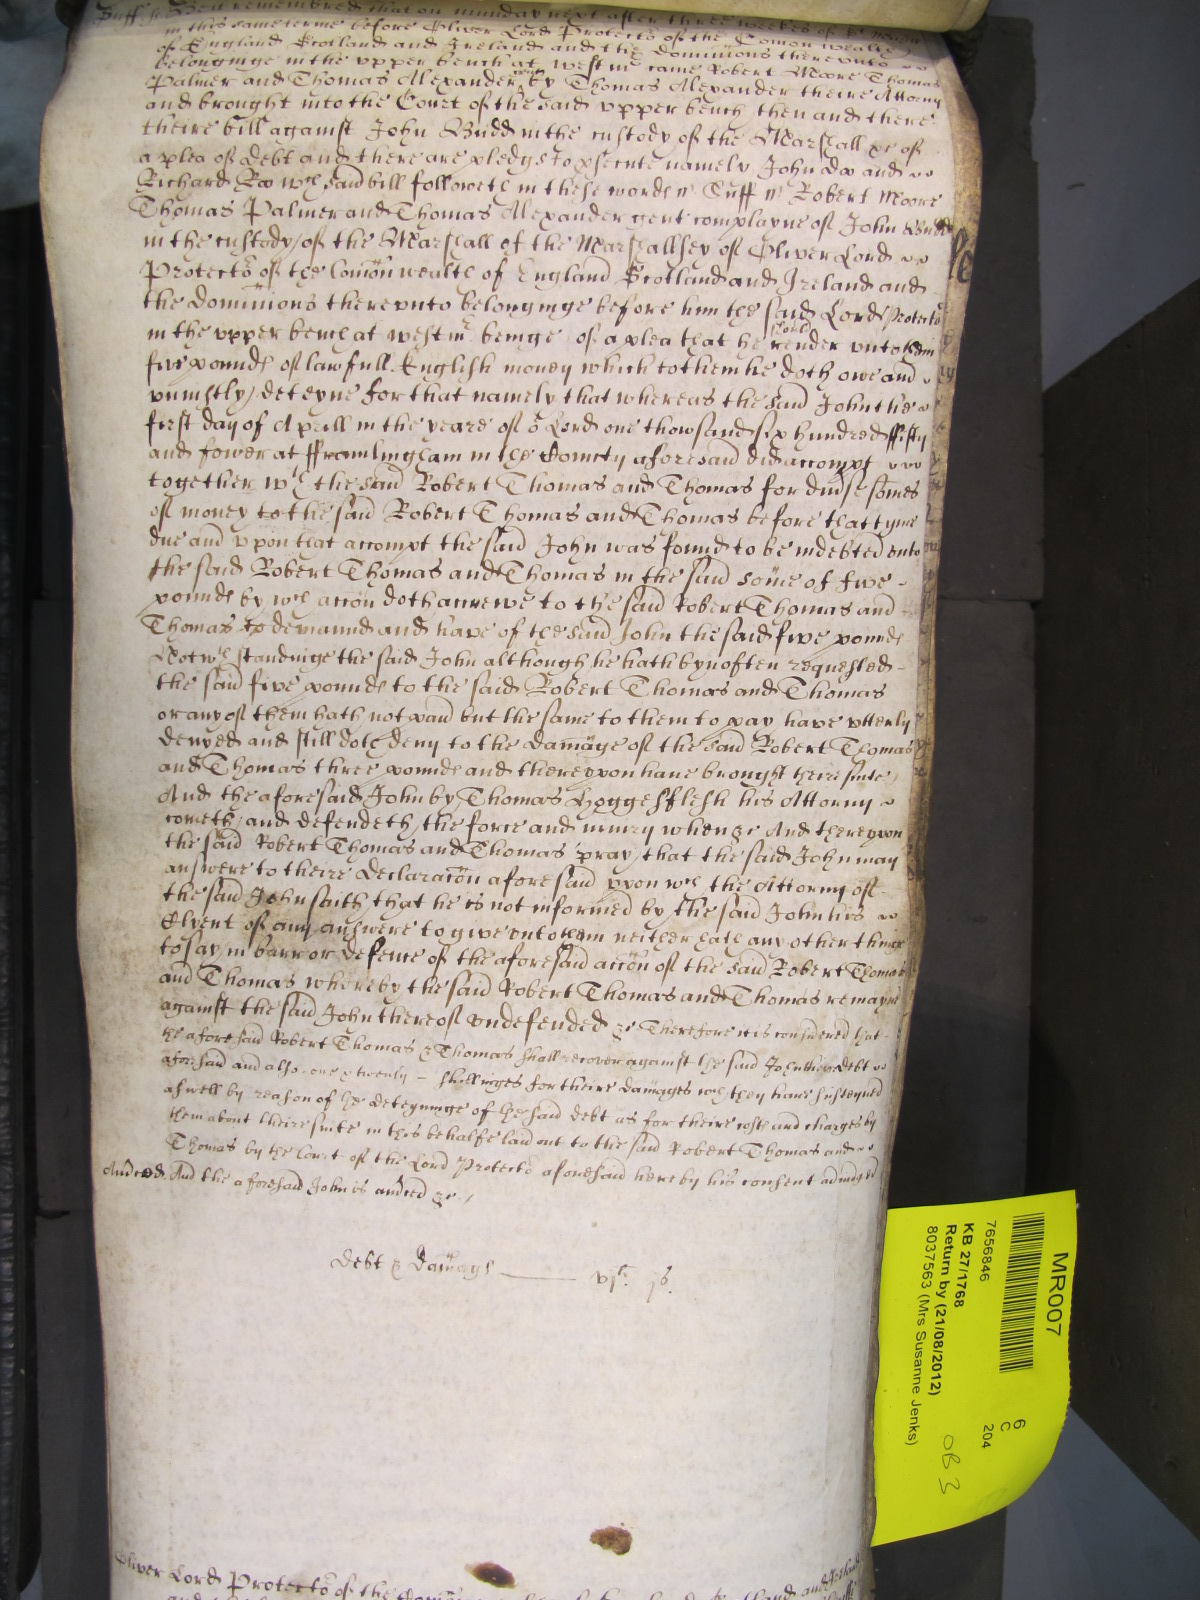 Suff ss Bee it remembred that on munday next after three weekes of St Mich
in this same terme before Oliver Lord Protector of the Comon wealth
of England Scotland and Ireland and the dominions therevnto
belonginge in the vpper bench at westmr came Robert Moore Thomas
Palmer and Thomas Alexander gent by Thomas Alexander theire Attorny
and brought into the Court of the said vpper bench then and there
theire bill against John Budd in the custody of the Marshall &c of
a plea of debt and there are pledgs to psecute namely John doo and
Richard Roo wch said bill followeth in these words ss Suff ss Robert Moore
Thomas Palmer and Thomas Alexander gent complayne of John Budd
in the custody of the Marshall of the Marshallsey of Oliver Lord
Protector of the Comon wealth of England Scotland and Ireland and
the dominions therevnto belonginge before him the said Lord Protector
in the vpper bench at westmr beinge of a plea that he should render vnto them
five pounds of lawfull English money which to them he doth owe and
vniustly deteyne for that namely that whereas the said John the
first day of Aprill in the yeare of or Lord one thowsand six hundred ffifty
and fower at fframlingham in the County aforesaid did accompt
together wth the said Robert Thomas and Thomas for diuse somes
of money to the said Robert Thomas and Thomas before that tyme
due and vpon that accompt the said John was found to be indebted vnto
the said Robert Thomas and Thomas in the said some of five
pounds by wch accon doth accrewe to the said Robert Thomas and
Thomas to demaund and have of the said John the said five pounds
Notwthstandinge the said John although he hath byn often requested
the said five pounds to the said Robert Thomas and Thomas
or any of them hath not paid but the same to them to pay have vtterly
denyed and still doth deny to the damage of the said Robert Thomas
and Thomas three pounds and therevpon haue brought theire suite
And the aforesaid John by Thomas Hoggesflesh his Attorny
cometh and defendeth the force and iniury when &c And therevpon
the said Robert Thomas and Thomas pray that the said John may
answere to theire declaracon aforesaid vpon wch the Attorny of
the said John saith that he is not informed by the said John his
Clyent of any answere to give vnto them neither hath any other thinge
to say in barr or defence of the aforesaid accon of the said Robert Thomas
and Thomas whereby the said Robert Thomas and Thomas remayne
against the said John thereof vndefended &c Therefore it is considered that
the aforesaid Robert Thomas & Thomas shall recover against the said John their debt
aforesaid and also one & twenty shillinges for theire damages wch they haue susteyned
aswell by reason of the deteyninge of the said debt as for theire costs and charges by
them about theire suite in this behalfe laid out to the said Robert Thomas and
Thomas by the Court of the Lord Protector aforesaid here by his consent adiudged
And the aforesaid John is amced &c
Amced
Debt & Damags vjli js
Oliver Lord Protector of the
MR007
7656846
KB 27/1768
Return by (21/08/2012)
8037563 (Mrs Susanne Jenks)
6
C
204
OB 3